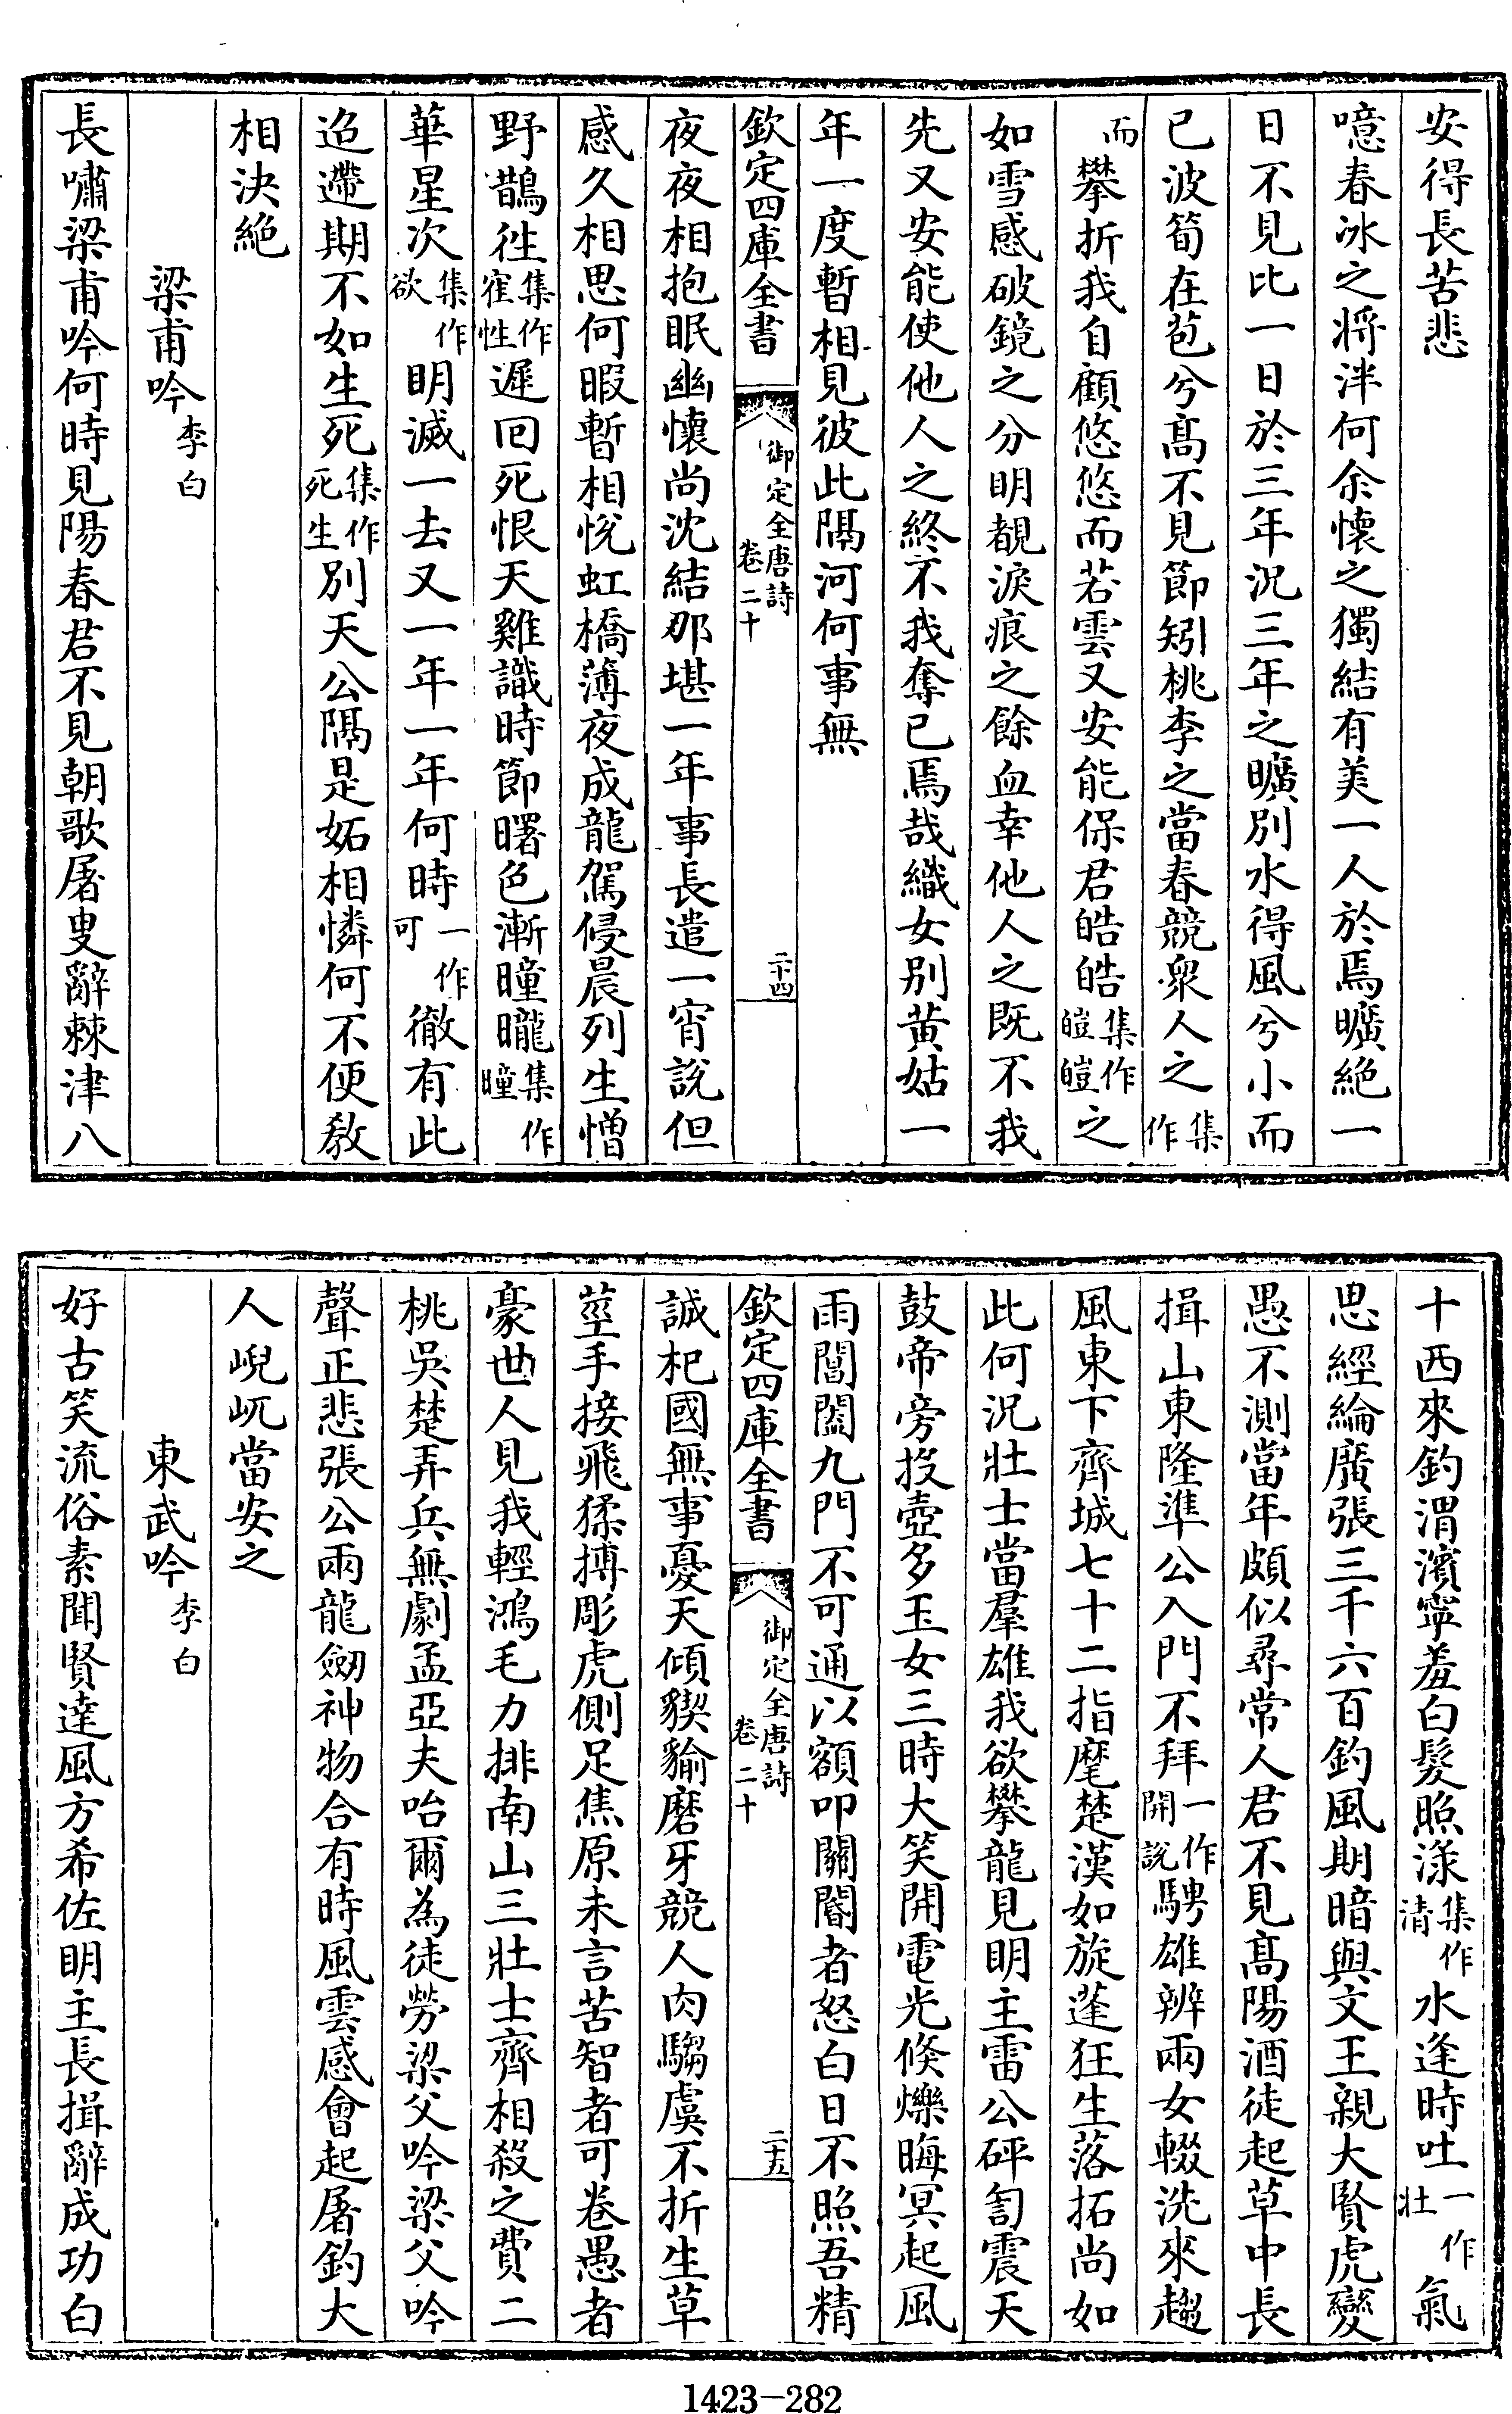 安得長苦悲
噫春冰之將泮何余懷之獨結有美一人於焉曠絕一
日不見比一日於三年況三年之曠別水得風兮小而
已波筍在苞兮高不見節矧桃李之當春競衆人之集作
而攀折我自顧悠悠而若雲又安能保君皓皓集作皚皚之
如雪感破鏡之分明覩淚痕之餘血幸他人之既不我
先又安能使他人之終不我奪已焉哉織女別黃姑一
年一度暫相見彼此隔河何事無
欽定四庫全書 御定全唐詩卷二十 二十四
夜夜相抱眠幽懷尚沈結那堪一年事長遣一宵說但
感久相思何暇暫相悅虹橋薄夜成龍駕侵晨列生憎
野鵲往集作寉性遲回死恨天雞識時節曙色漸曈曨集作曈
華星次集作欲明滅一去又一年一年何時一作可徹有此
迢遰期不如生死集作死生別天公隔是妬相憐何不便教
相決絕
梁甫吟李白
長嘯梁甫吟何時見陽春君不見朝歌屠叟辭棘津八
十西來釣渭濱寧羞白髮照渌集作清水逢時吐一作壯氣
思經綸廣張三千六百釣風期暗與文王親大賢虎變
愚不測當年頗似尋常人君不見高陽酒徒起草中長
揖山東隆準公入門不拜一作開說騁雄辨兩女輟洗來趨
風東下齊城七十二指麾楚漢如旋蓬狂生落拓尚如
此何況壯士當羣雄我欲攀龍見明主雷公砰訇震天
鼓帝旁投壺多玉女三時大笑開電光倐爍晦冥起風
雨閶闔九門不可通以額叩關閽者怒白日不照吾精
欽定四庫全書 御定全唐詩卷二十 二十五
誠杞國無事憂天傾猰貐磨牙競人肉騶虞不折生草
莖手接飛猱搏彫虎側足焦原未言苦智者可卷愚者
豪世人見我輕鴻毛力排南山三壯士齊相殺之費二
桃吳楚弄兵無劇孟亞夫咍爾為徒勞梁父吟梁父吟
聲正悲張公兩龍劒神物合有時風雲感會起屠釣大
人𡸣屼當安之
東武吟李白
好古笑流俗素聞賢達風方希佐明主長揖辭成功白
1423-282